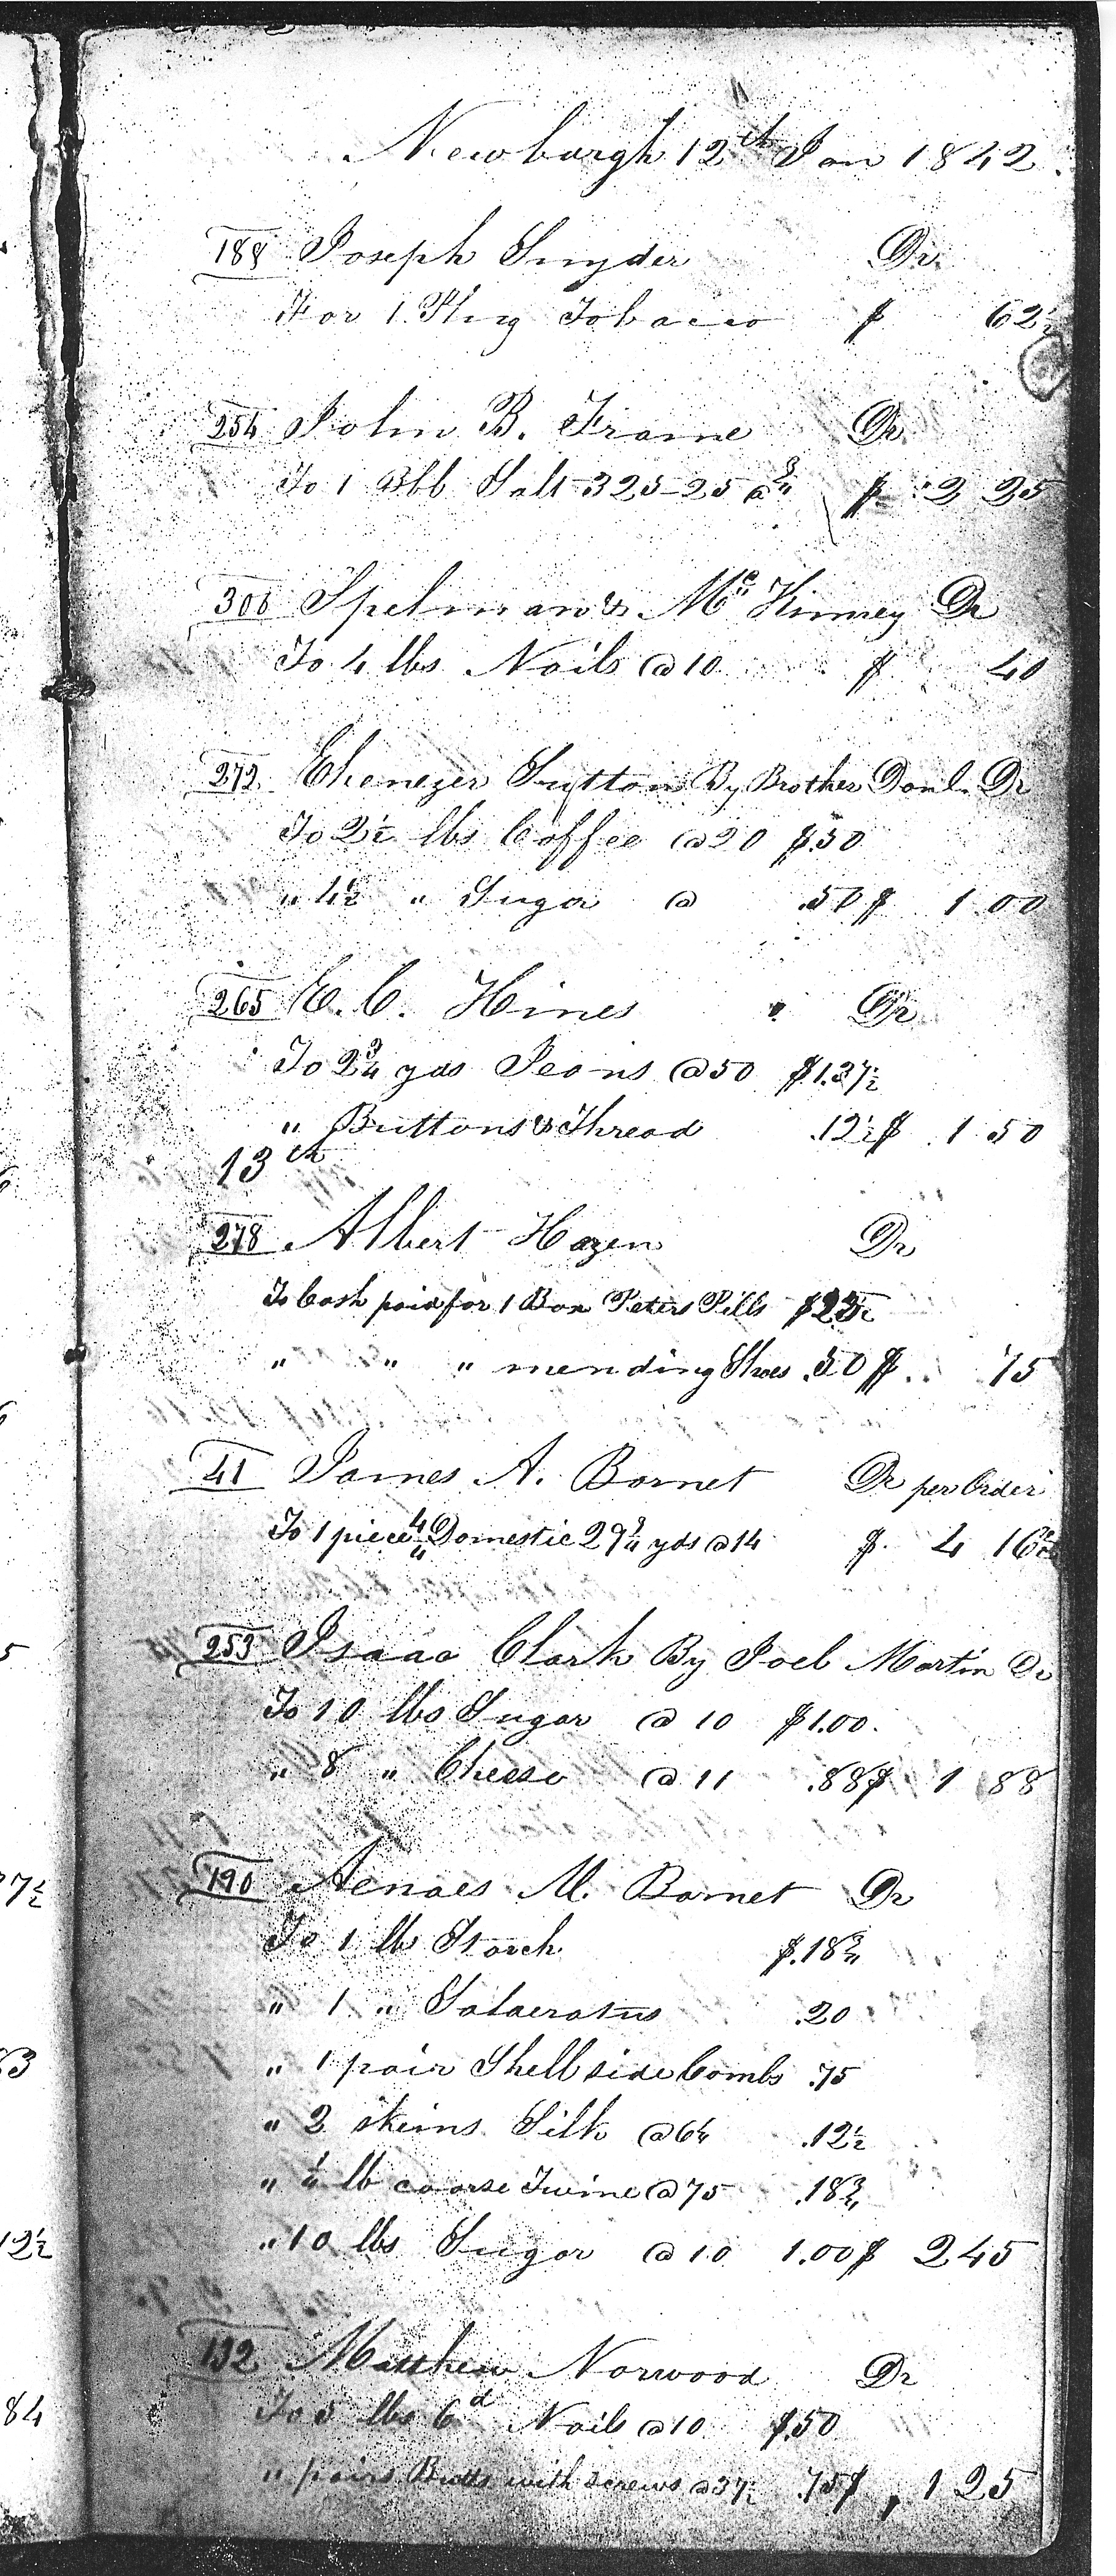 Newburgh 12th Jan 1842.
188 Joseph Snyder Dr.
For 1 Plug Tobacco $ 62½
254 John B. Frame Dr.
To 1 Bbl Salt 325-25 @ ¾ $ 2 25
306 Spelman & McKinney Dr
To 4 lbs Nails @ 10 $ 40
272 Ebenezer Sutton By Brother Danl. Dr
To 2½ lbs Coffee @ 20 $.50
" 4½ " Sugar @ .50 $ 1 00
265 E. C. Hines Dr
To 2¾ yds Jeans @ 50 $1.37½
" Buttons & Thread .12½ $ 1 50
13th
278 Albert Hazen Dr
To Cash paid for 1 Box Peters Pills $25
" " " mending Shoes .50 $ 75
41 James A. Barnet Dr per Order
To 1 piece 4/4 Domestic 29¾ yds @ 14 $ 4 16½
253 Isaac Clark By Joel Martin Dr
To 10 lbs Sugar @ 10 $1.00.
" 8 " Cheese @ 11 .88 $ 1 88
190 Aenaes M. Barnet Dr
To 1 lb Starch $.18¾
" 1 " Salaeratus .20
" 1 pair Shell side Combs .75
" 2 skeins Silk @ 6¼ .12½
" ¼ lb coarse Twine @ 75 .18¾
" 10 lbs Sugar @ 10 1.00 $ 2 45
132 Matthew Norwood Dr
To 5 lbs 6d Nails @ 10 $.50
" pairs Butts with screws @ 37½ .75 $ 1 25